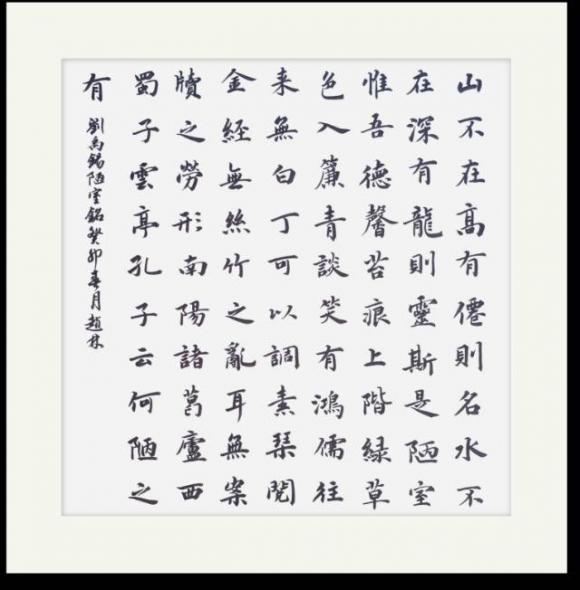 山不在高有僊則名水不
在深有龍則靈斯是陋室
惟吾德馨苔痕上階緑草
色入簾青談笑有鴻儒往
来無白丁可以調素琴閱
金經無絲竹之亂耳無案
牘之勞形南陽諸葛廬西
蜀子雲亭孔子云何陋之
有
劉禹錫陋室銘癸卯春月趙林